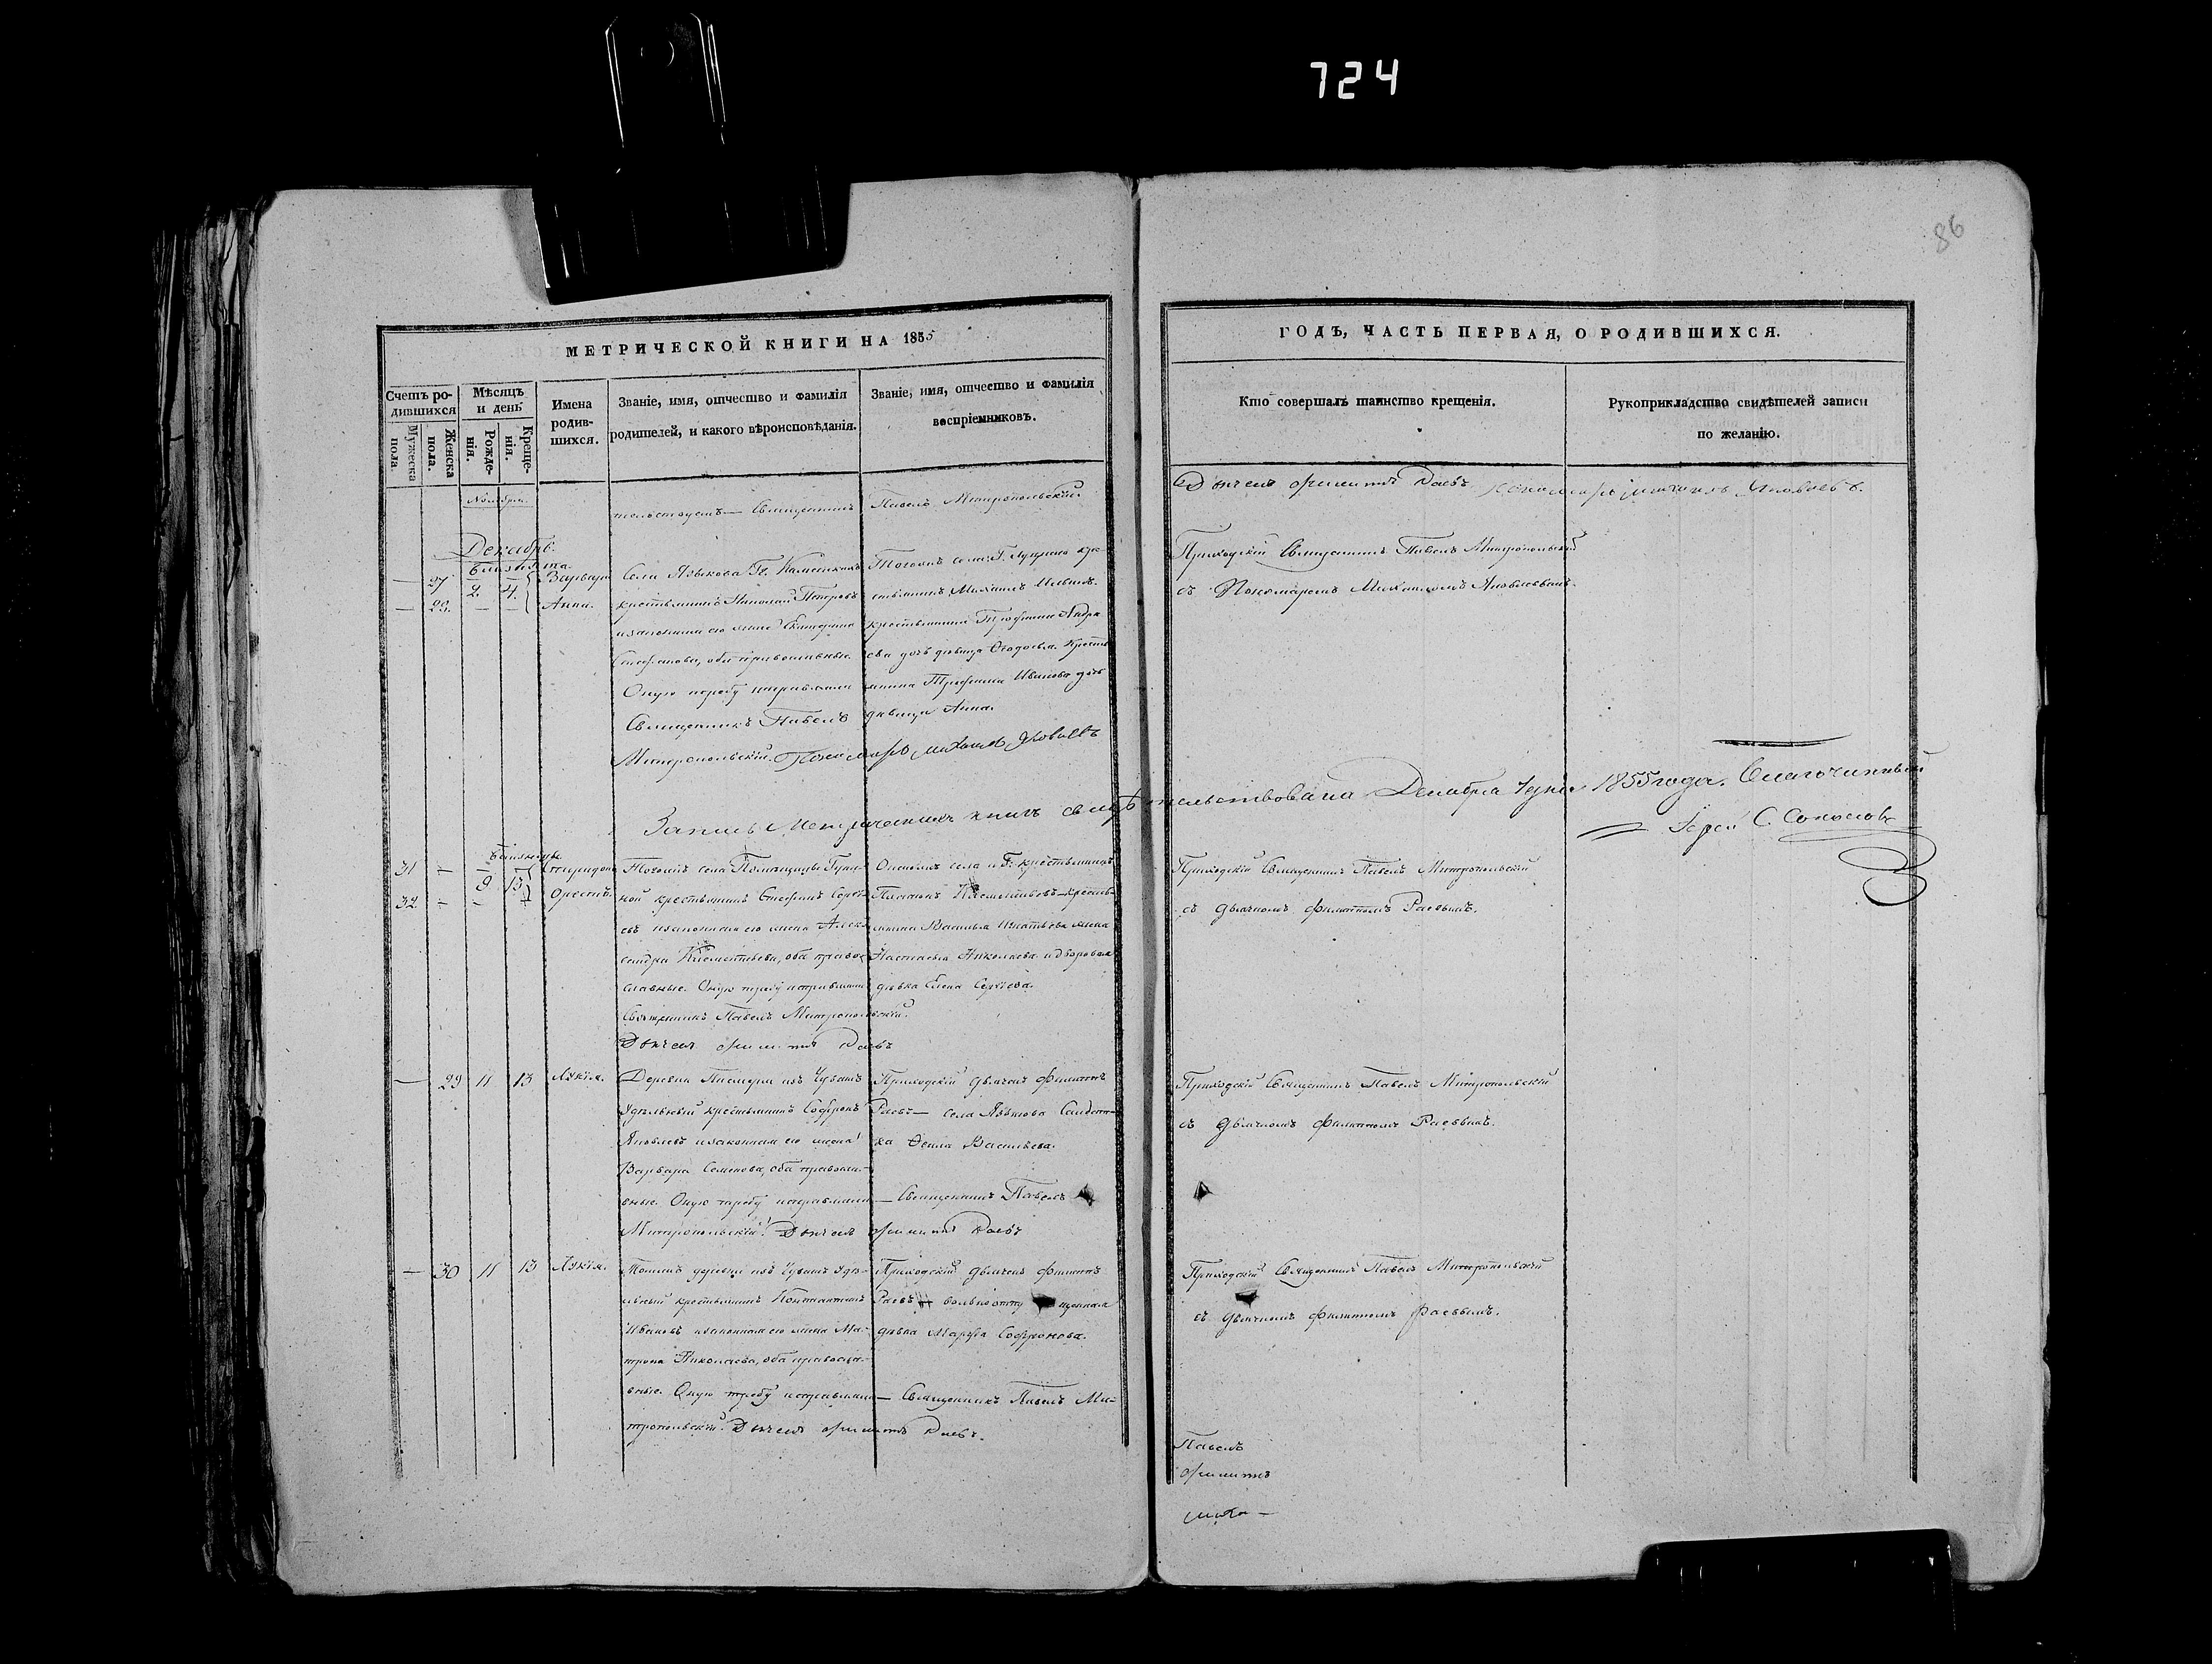 724
86
МЕТРИЧЕСКОЙ КНИГИ НА 1855
ГОДЪ, ЧАСТЬ ПЕРВАЯ, О РОДИВШИХСЯ.
Счетъ ро-
дившихся
Мужеска
пола.
Женска
пола.
Мѣсяцъ
и день
Рожде-
нія.
Креще-
нія.
Имена
родив-
шихся.
Званіе, имя, отчество и фамилія
родителей, и какого вѣроисповѣданія.
Званіе, имя, отчество и фамилія
воспріемниковъ.
Кто совершалъ таинство крещенія.
Рукоприкладство свидѣтелей записи
по желанію.
Священникъ Павелъ Митропольскій
Дьячекъ Филиппъ Раевъ
Декабрь.
близнята.
27 2. 4. Варвара
28. Анна.
Села Языкова Г.
крестьянинъ Николай Петровъ
изаконная его жена Екатерина
Стефанова, оба православные.
Оную требу исправляли
Священникъ Павелъ
Митропольскій. Пономарь Михаилъ Яковлевъ
Тогожъ села Г.
крестьянина Трофима Андре
ева дочь дѣвица Ѳеодосья. Кресть
янина Трофима Иванова дочь
дѣвица Анна.
Приходскій Священникъ Павелъ Митропольскій
съ Пономаремъ Михаиломъ Яковлевымъ.
Запись Метрическихъ книгъ свидѣтельствована Декабря 7 дня 1855 года. Благочинный
Іерей С. Соколовъ
близнецы
31 9 13 Спиридонъ
32. Орестъ.
Тогожъ села Помѣщицы
ной крестьянинъ Стефанъ Сергѣ
евъ изаконная его жена Алек
сандра Климентьева, оба право
славные. Оную требу исправляли
Священникъ Павелъ Митропольскій.
Дьячекъ Филиппъ Раевъ
Онагожъ села и Г. крестьянинъ
Платонъ Климентьевъ крестья
янина Василья Игнатьева жена
Настасья Николаева и дворовая
дѣвка Елена Сергѣева.
Приходскій Священникъ Павелъ Митропольскій
съ дьячкомъ Филиппомъ Раевымъ.
29 11 13 Лукія.
Деревни изъ Чувашъ
Удѣльный крестьянинъ Софронъ
Яковлевъ изаконная его жена
Варвара Семенова, оба правосла-
вные. Оную требу исправляли — Священникъ Павелъ
Митропольскій. Дьячекъ Филиппъ Раевъ
Приходскій дьячекъ Филиппъ
Раевъ — села Языкова Солдат-
ка Ѳекла Васильева.
Приходскій Священникъ Павелъ Митропольскій
съ дьячкомъ Филиппомъ Раевымъ.
30 11 13 Лукія.
Тойжъ деревни изъ Чувашъ Удѣ-
льный крестьянинъ Константинъ
Ивановъ изаконная его жена Ма-
трона Николаева, оба правосла-
вные. Оную требу исправляли — Священникъ Павелъ Ми-
тропольскій. Дьячекъ Филиппъ Раевъ.
Приходскій дьячекъ Филиппъ
Раевъ вольноотпущенная
дѣвка Марѳа Софронова.
Приходскій Священникъ Павелъ Митропольскій
съ дьячкомъ Филиппомъ Раевымъ.
Павелъ
Филиппъ
Миха —